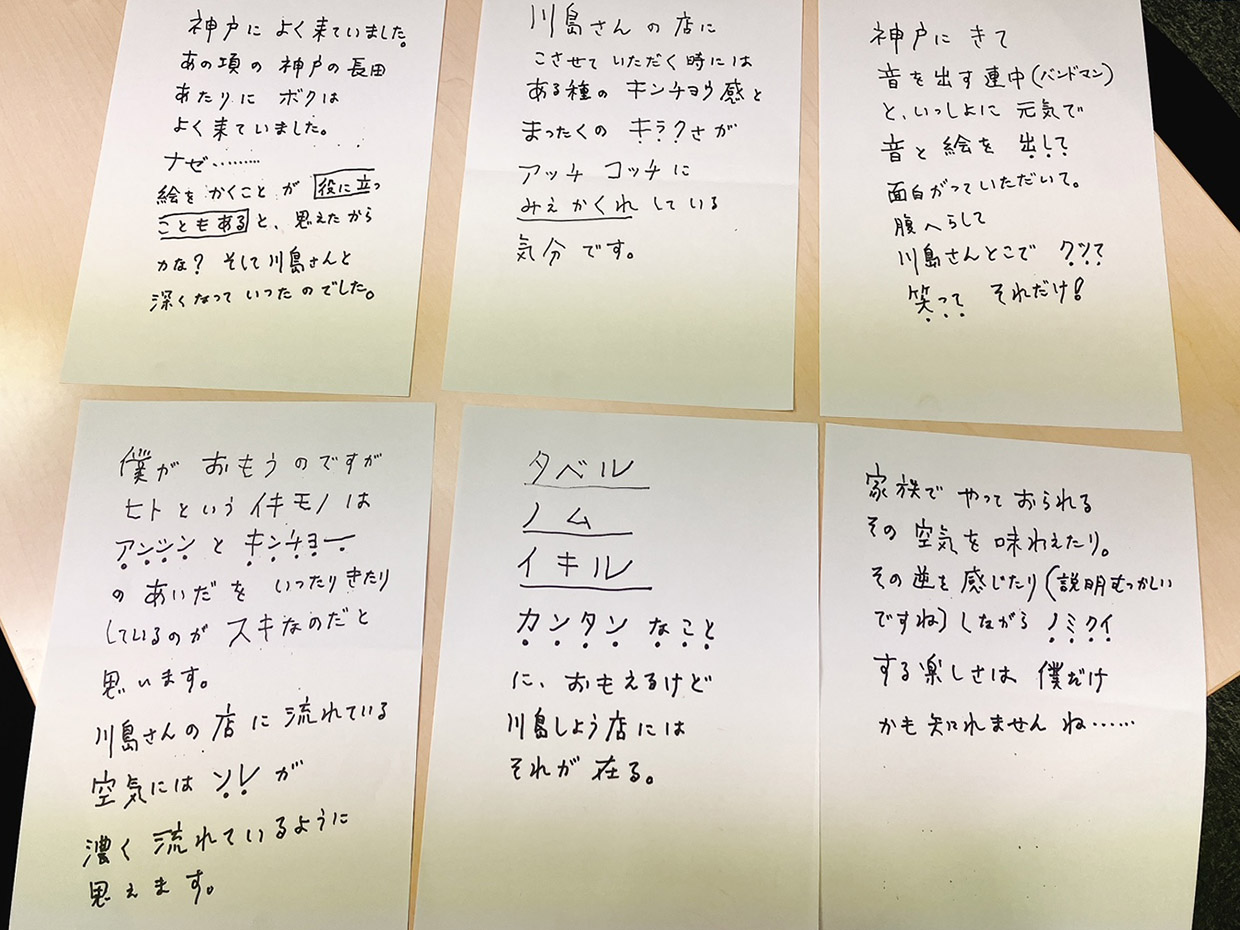 神戸に よく来ていました。
あの項の 神戸の長田
あたりに ボクは
よく来ていました。
ナゼ………
絵を かくこと が 役に立つ
こともある と、思えたから
かな? そして川島さんと
深くなって いったのでした。
川島さんの店に
こさせて いただく時には
ある種の キンチョウ感と
まったくの キラクさが
アッチ コッチに
みえかくれ している
気分 です。
神戸に きて
音を出す連中(バンドマン)
と、いっしょに 元気で
音と 絵を 出して
面白がっていただいて。
腹へらして
川島さんとこで クッて
笑って それだけ!
僕が おもうのですが
ヒトという イキモノは
アンシン と キンチョー
の あいだを いったりきたり
しているのが スキなのだと
思います。
川島さんの 店に 流れている
空気には ソレ が
濃く 流れているように
思えます。
タベル
ノム
イキル
カンタン なこと
に、おもえるけど
川島しょう店には
それが 在る。
家族で やって おられる
その 空気を 味わえたり。
その 逆を 感じたり(説明むつかしい
ですね) しながら ノミクイ
する楽しさは 僕だけ
かも 知れません ね……